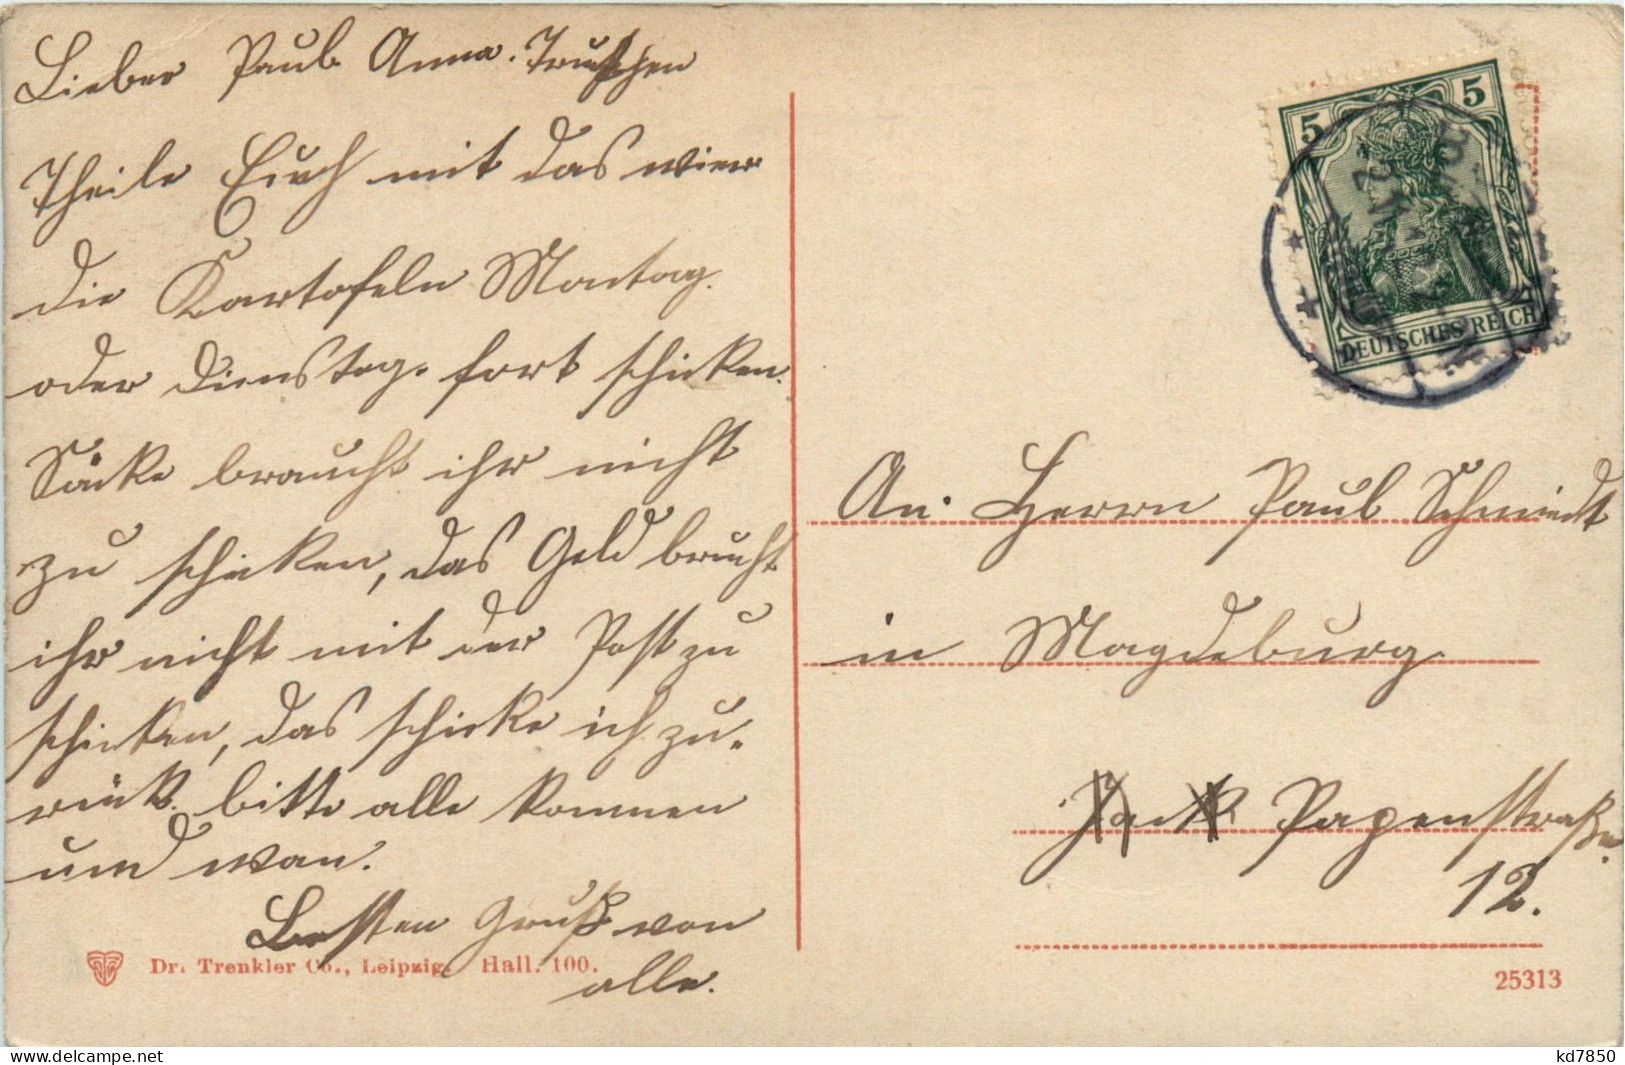 Lieber Paul Anna. Trudchen
Theile Euch mit das wier
die Kartofeln Montag.
oder Dienstag. fort schicken.
Säcke braucht ihr nicht
zu schicken, das Geld brucht
ihr nicht mit der Post zu
schicken, das schicke ich zu-
rück. bitte alle kommen
und wan.
Besten Gruß von
alle.
Dr. Trenkler Co., Leipzig. Hall. 100.
5 5
DEUTSCHES REICH
An Herrn Paul Schmidt
in Magdeburg.
Papenstraße.
12.
25313
kd7850
www.delcampe.net